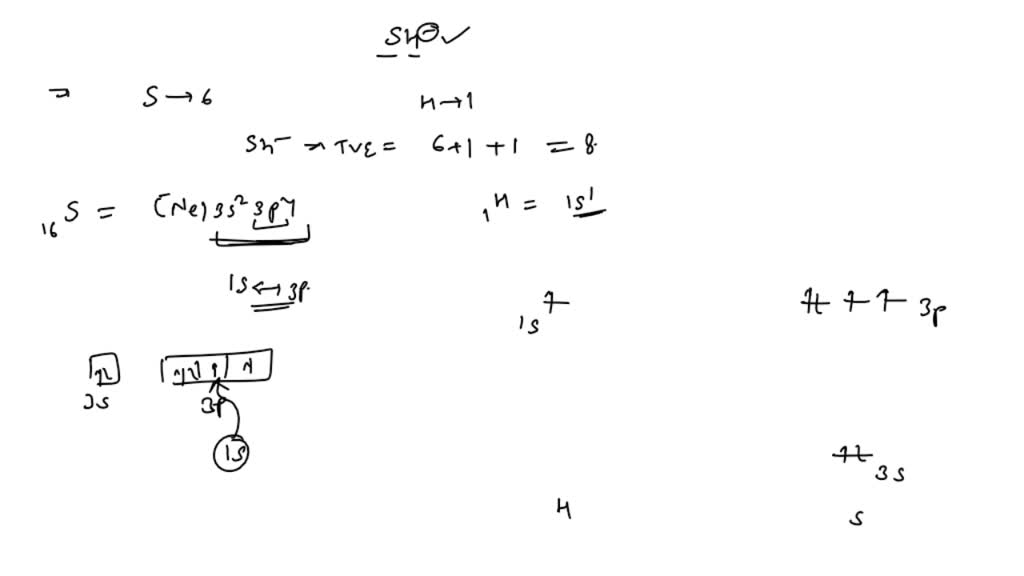 SH⊖ ✓
⇒ S → 6 H → 1
SH⁻ → TVE = 6+1+1 = 8
₁₆S = [Ne] 3s² 3p⁴ ₁H = 1s¹
1s ↔ 3p
1s 3p
3s 3p
1s
3s
H S